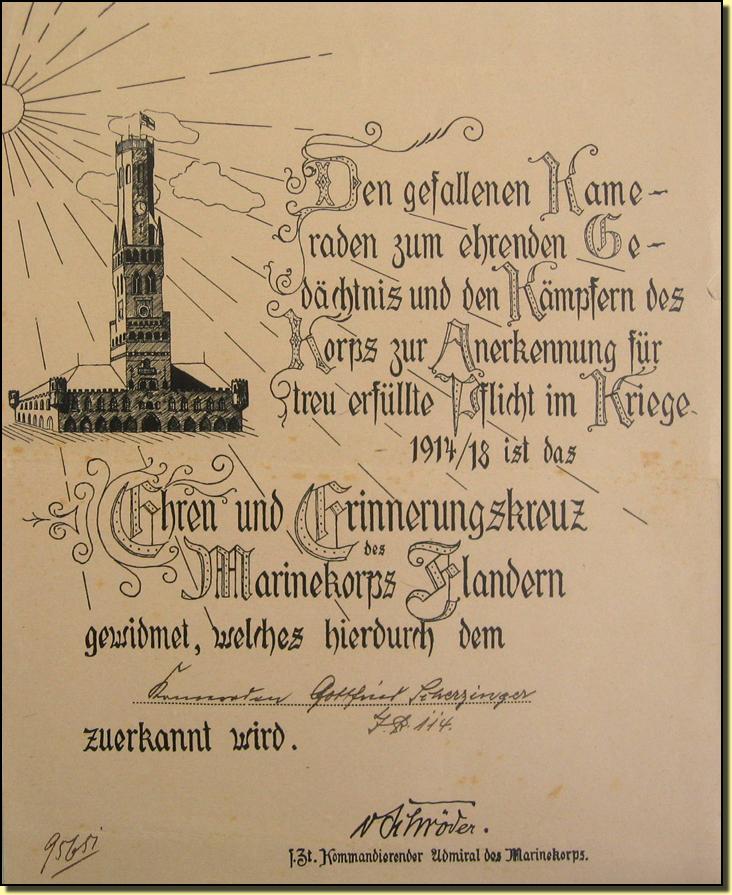 Den gefallenen Kame-
raden zum ehrenden Ge-
dächtnis und den Kämpfern des
Korps zur Anerkennung für
treu erfüllte Pflicht im Kriege
1914/18 ist das
Ehren und Erinnerungskreuz
des
Marinekorps Flandern
gewidmet, welches hierdurch dem
Kameraden Gottfried Scherzinger
114.
zuerkannt wird.
v Schröder.
s. Zt. Kommandierender Admiral des Marinekorps.